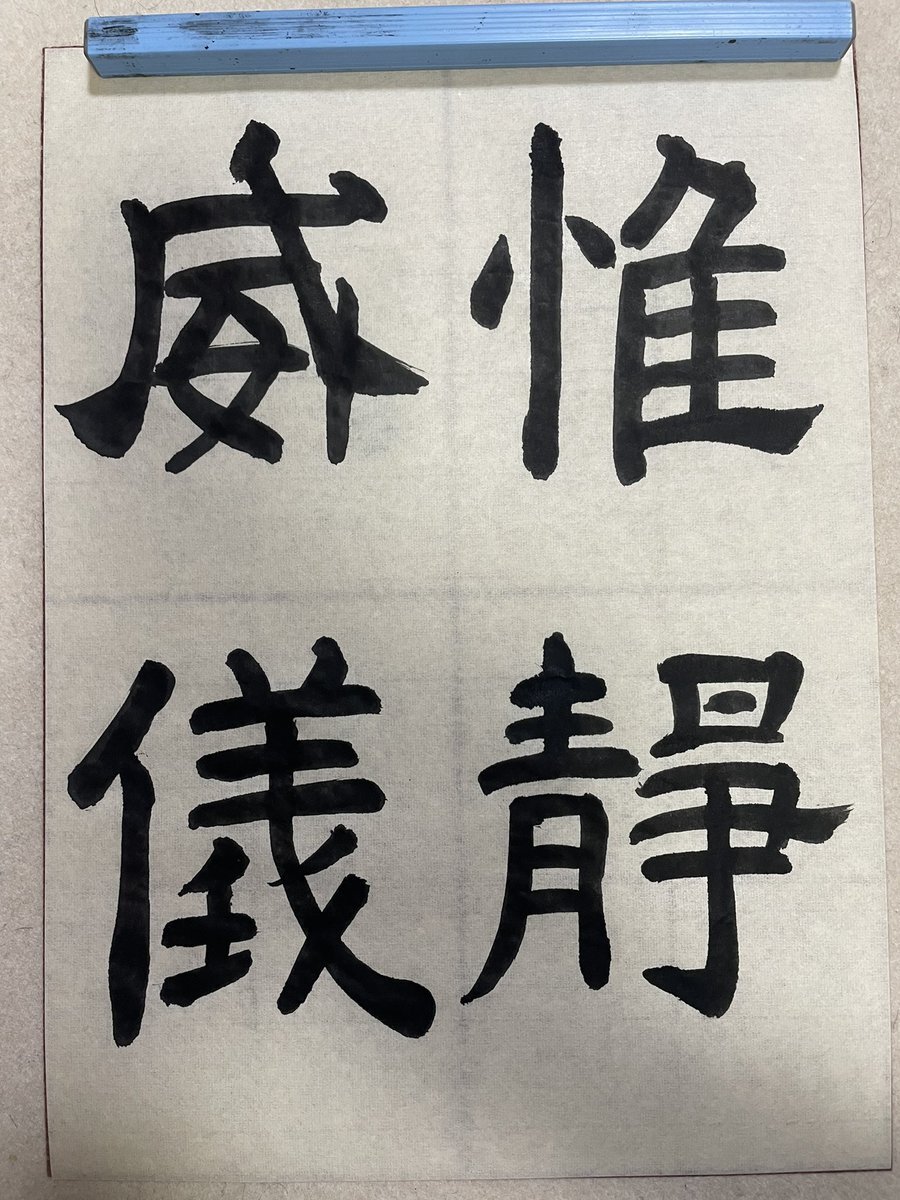 惟靜
威儀